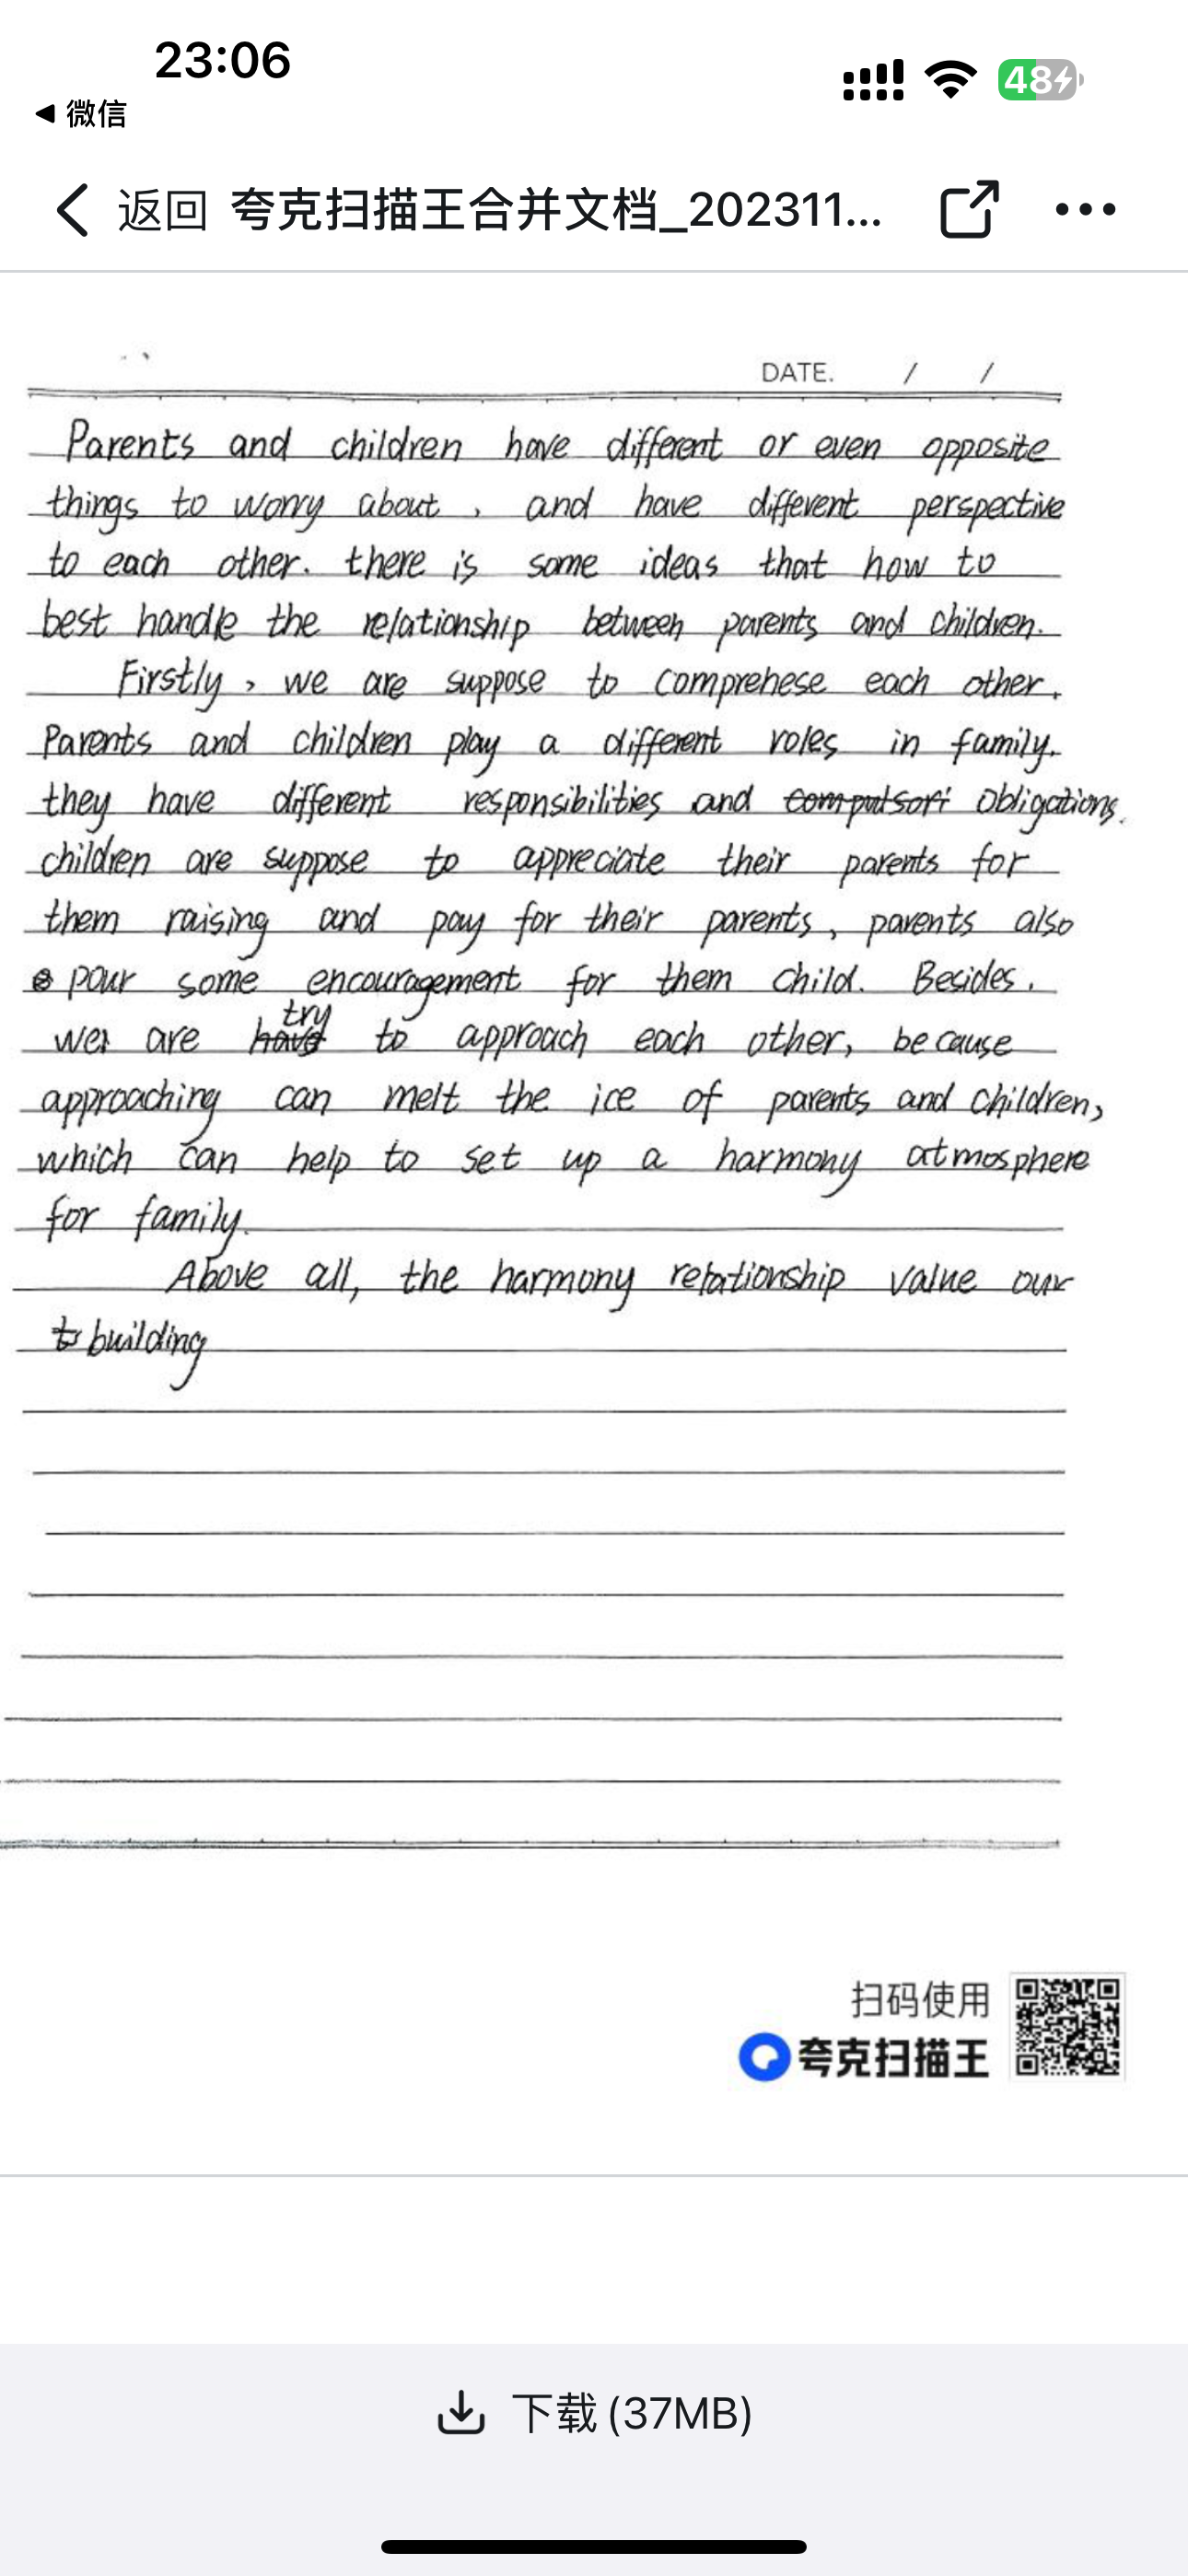 23:06
48
◀ 微信
返回 夸克扫描王合并文档_202311...
DATE. / /
Parents and children have different or even opposite
things to worry about, and have different perspective
to each other. there is some ideas that how to
best handle the relationship between parents and children.
Firstly, we are suppose to comprehese each other.
Parents and children play a different roles in family.
they have different responsibilities and compulsori obligations.
children are suppose to appreciate their parents for
them raising and pay for their parents, parents also
pour some encouragement for them child. Besides.
try
we are have to approach each other, because
approaching can melt the ice of parents and children,
which can help to set up a harmony atmosphere
for family.
Above all, the harmony relationship value our
to building
扫码使用
夸克扫描王
下载 (37MB)